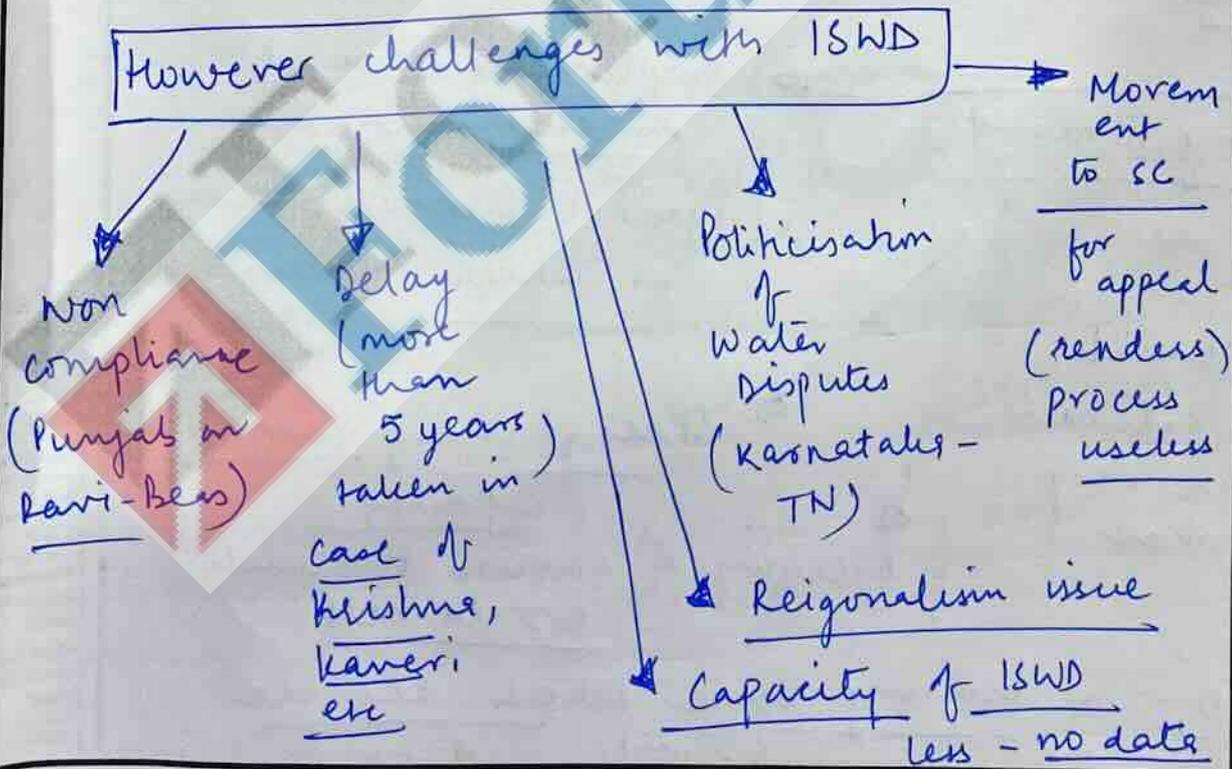 However challenges with ISWD
Non
compliance
(Punjab on
Ravi-Beas)
Delay
(more
than
5 years)
taken in
case of
Krishna,
Kaveri
etc
Politicisation
of
Water
Disputes
(Karnataka-
TN)
Movem
ent
to SC
for
appeal
(renders)
process
useless
Reigonalism issue
Capacity of ISWD
less - no data